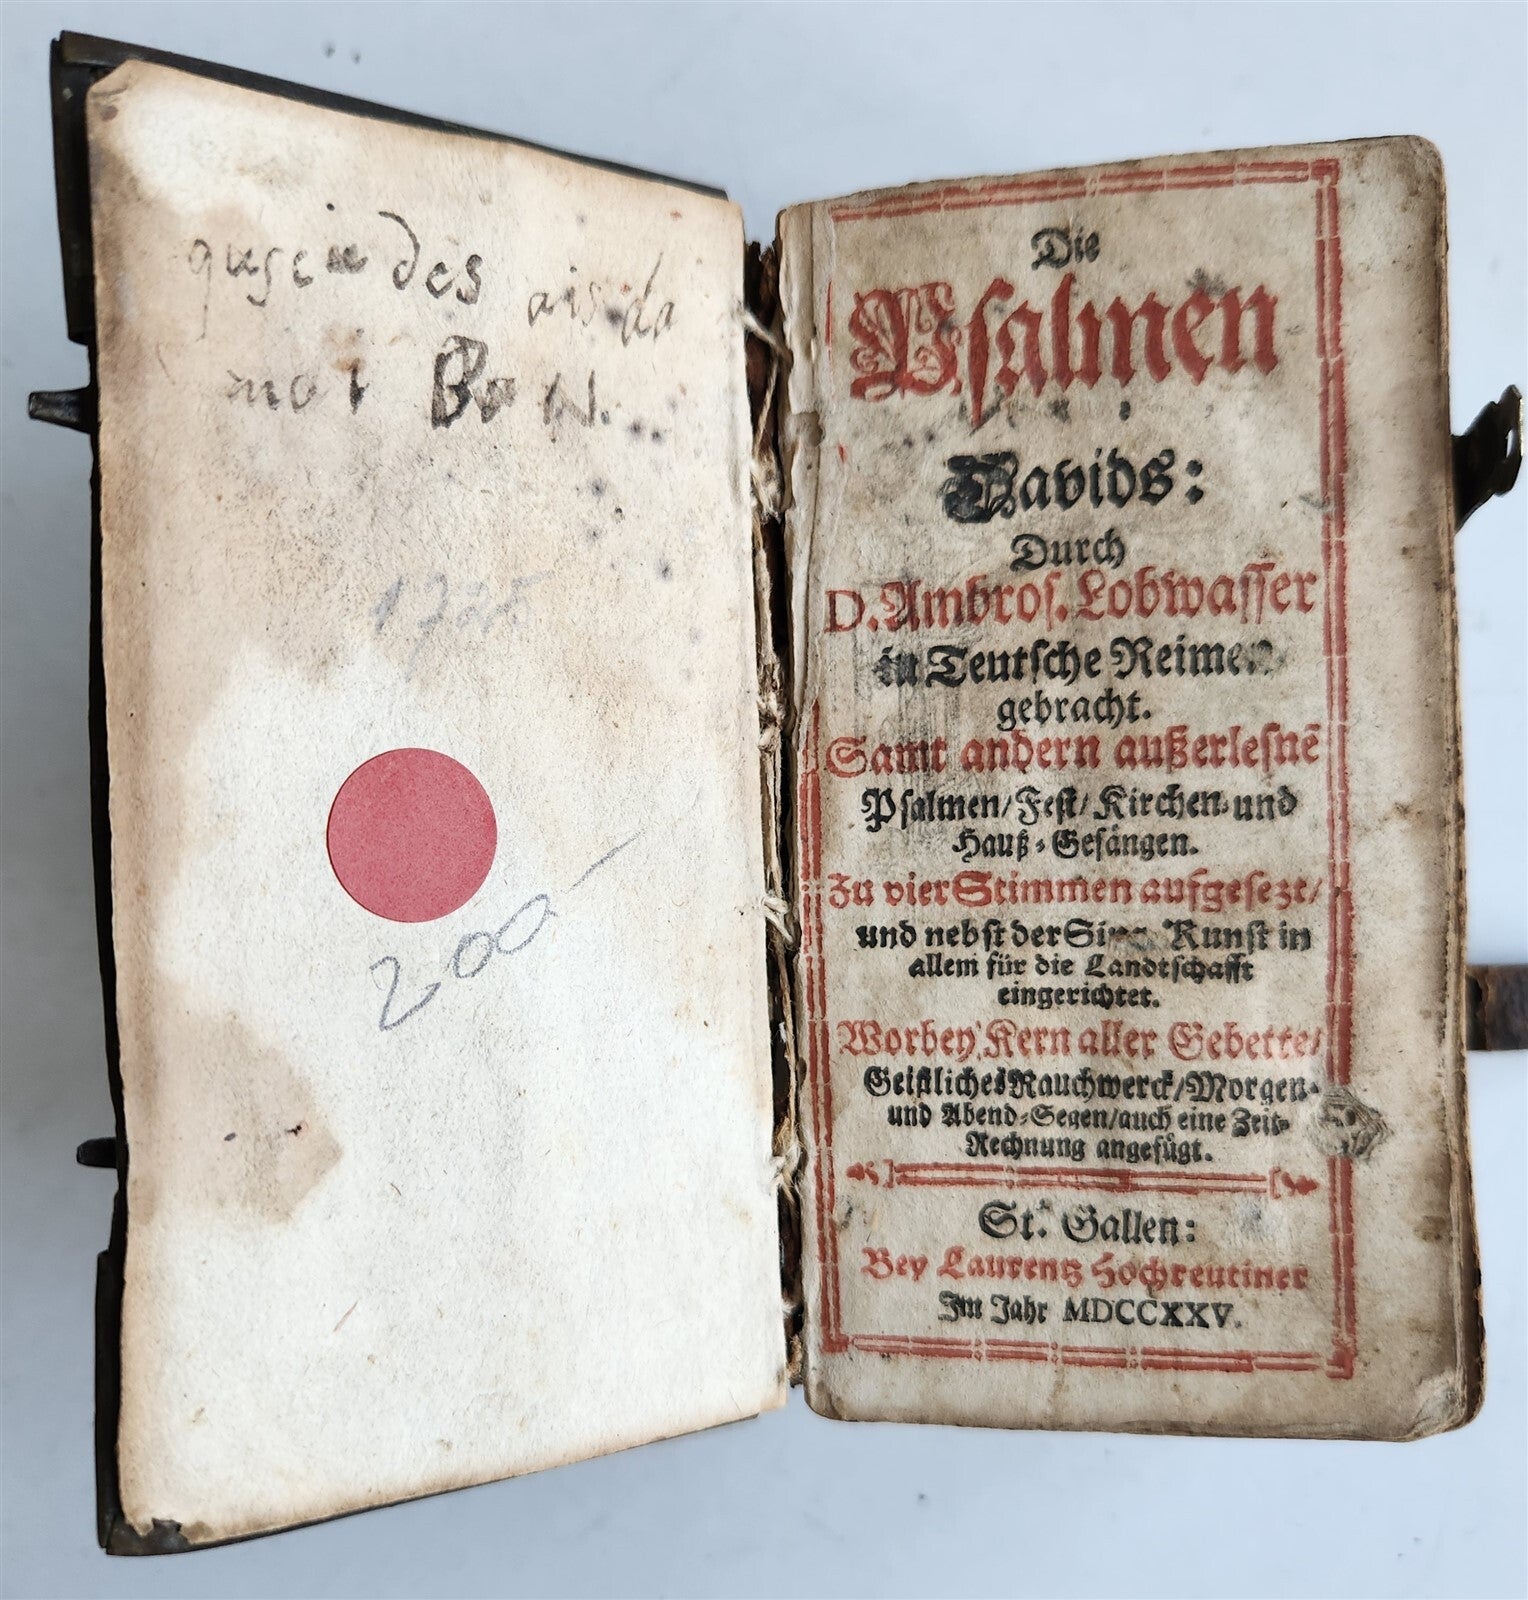 des
1725
200-
Die
Psalmen
Davids:
Durch
D. Ambros. Lobwasser
in Teutsche Reimen
gebracht.
Samt andern außerlesnē
Psalmen/Fest/Kirchen-und
Hauß-Gesängen.
Zu vier Stimmen aufgesezt/
und nebst der Sing-Kunst in
allem für die Landtschafft
eingerichtet.
Worbey Kern aller Gebette/
Geistliches Rauchwerck/Morgen-
und Abend-Segen/auch eine Zeit-
Rechnung angefügt.
St. Gallen:
Bey Laurentz Hochreutiner
Im Jahr MDCCXXV.